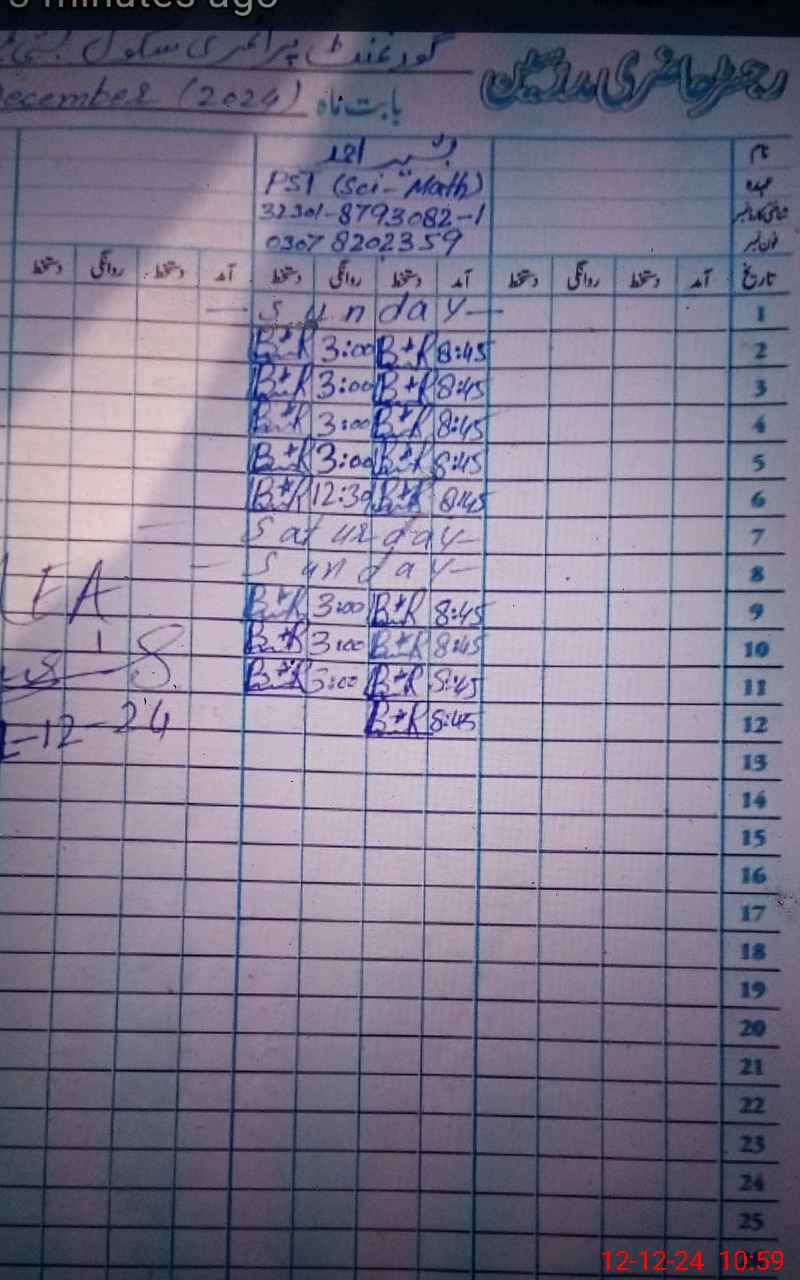 minutes ago
گورنمنٹ پرائمری سکول
رجسٹر حاضری مدرسین
December (2024) بابت ماہ
نام بشیر احمد
عہدہ PST (Sci-Math)
شناختی کارڈ نمبر 32301-8793082-1
فون نمبر 0307 8202359
تاریخ آمد دستخط روانگی دستخط آمد دستخط روانگی دستخط آمد دستخط روانگی دستخط
1 — Sunday —
2 8:45 B+R 3:00 B+R
3 8:45 B+R 3:00 B+R
4 8:45 B+R 3:00 B+R
5 8:45 B+R 3:00 B+R
6 8:45 B+R 12:30 B+R
7 — Saturday —
8 — Sunday —
9 8:45 B+R 3:00 B+R
10 8:45 B+R 3:00 B+R
11 8:45 B+R 3:00 B+R
12 8:45 B+R
EA
-12-24
13
14
15
16
17
18
19
20
21
22
23
24
25
12-12-24 10:59